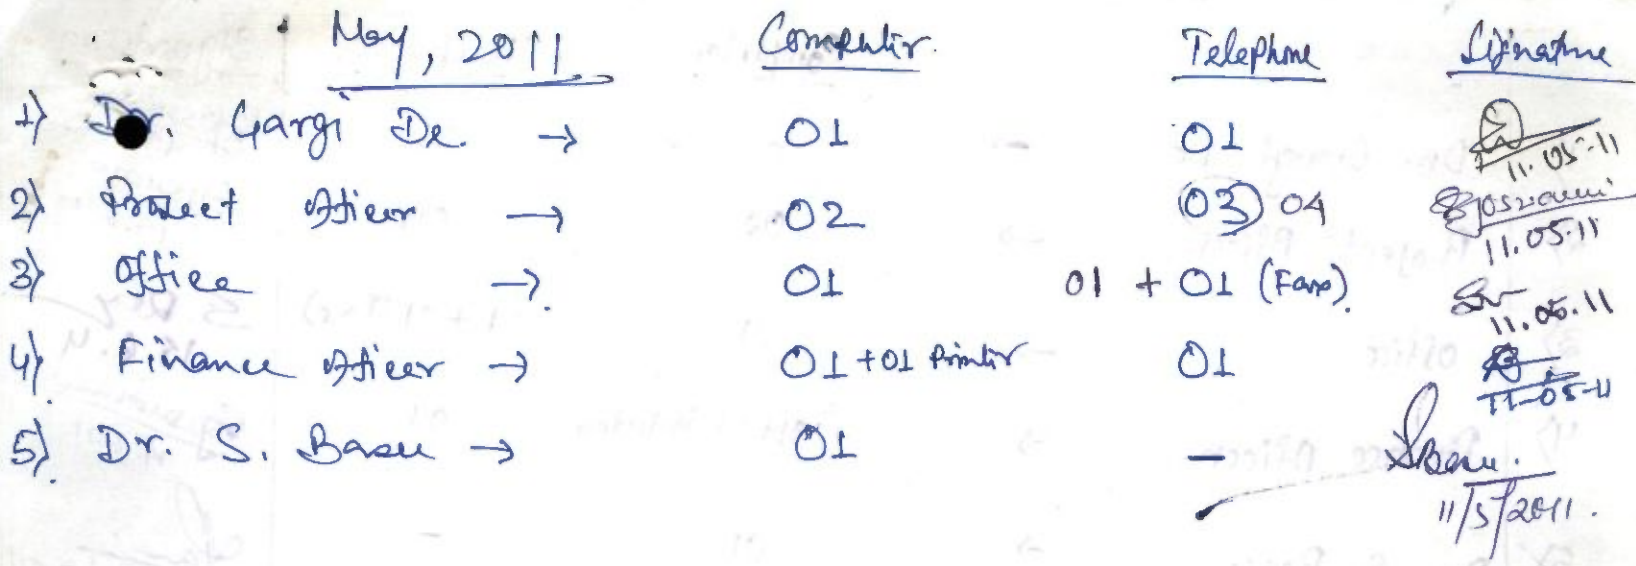 May, 2011 Computer Telephone Signature
1) Dr. Gargi De. → 01 01 11.05.11
2) Project Officer → 02 (03) 04 Goswami 11.05.11
3) Office → 01 01 + 01 (Fax) 11.05.11
4) Finance Officer → 01 + 01 Printer 01 11-05-11
5) Dr. S. Basu → 01 — SBasu. 11/5/2011.